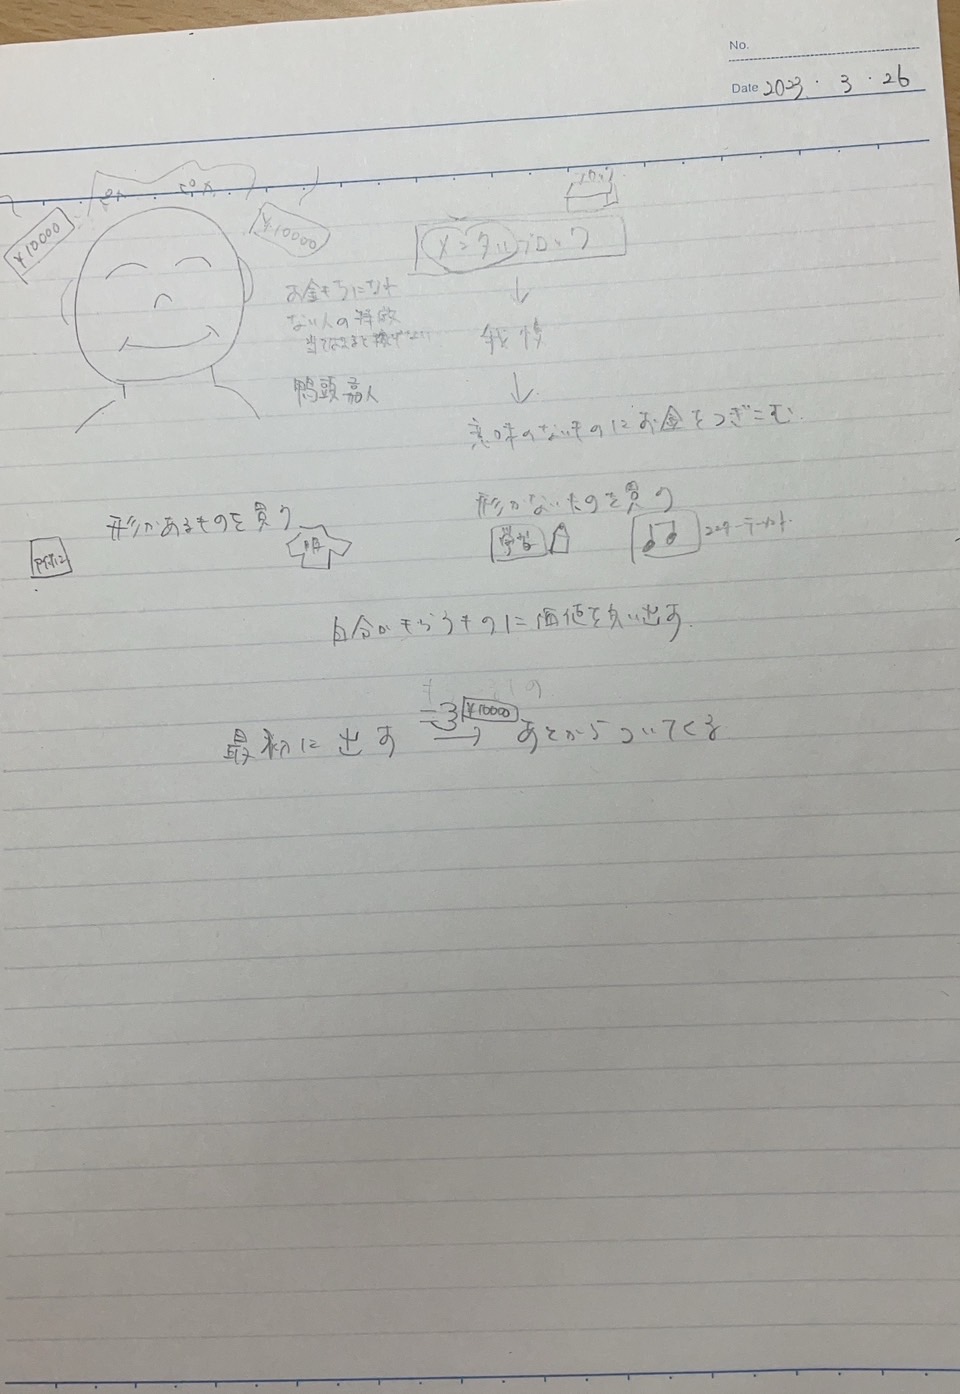 No.
Date 2023・3・26
ピカ ピカ
¥10000
¥10000
ブロック
メンタルブロック
お金もちになれ
ない人の特徴
当てはまると稼げない
鴨頭嘉人
↓
我慢
↓
意味のないものにお金をつぎこむ.
形があるものを買う
服
形がないものを買う
学習
エンターテーメント.
自分がもらうものに価値を見い出す.
¥10000
最初に出す → あとからついてくる